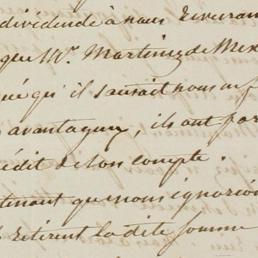 dividende à nous revenant
que Mr. Martinez de Mex
qu'il saurait nous
avantageux, ils ont par
crédit de son compte.
tenant que nous ignorions
retirent la dite somme